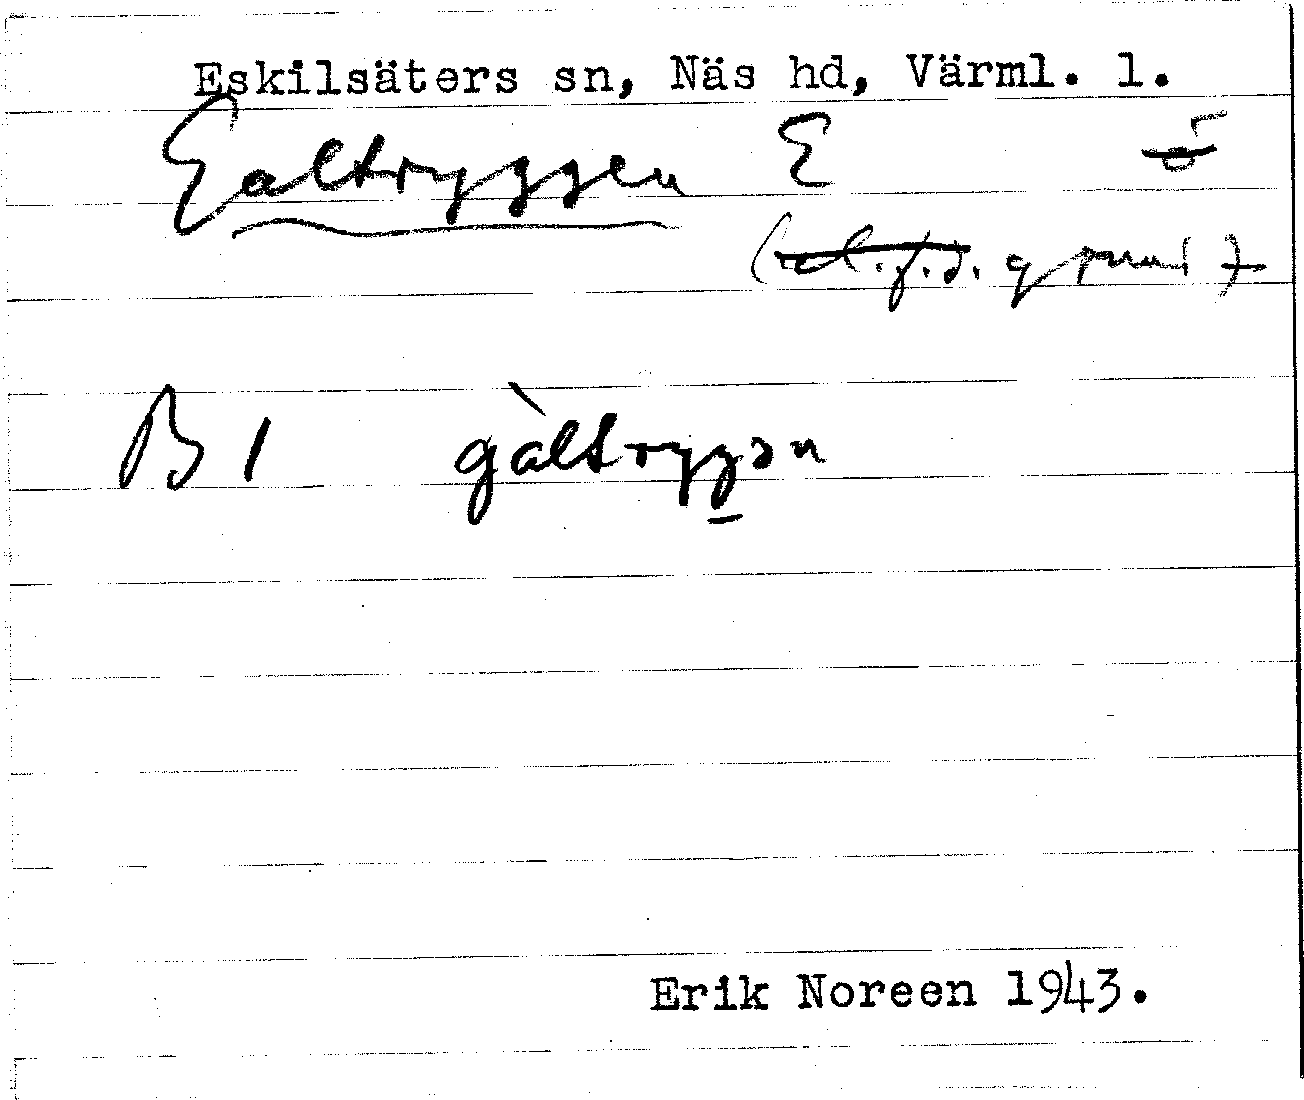 Eskilsäters sn, Näs hd, Värml. l.
Galtryggen E
B 1 gàltrygən
Erik Noreen 1943.